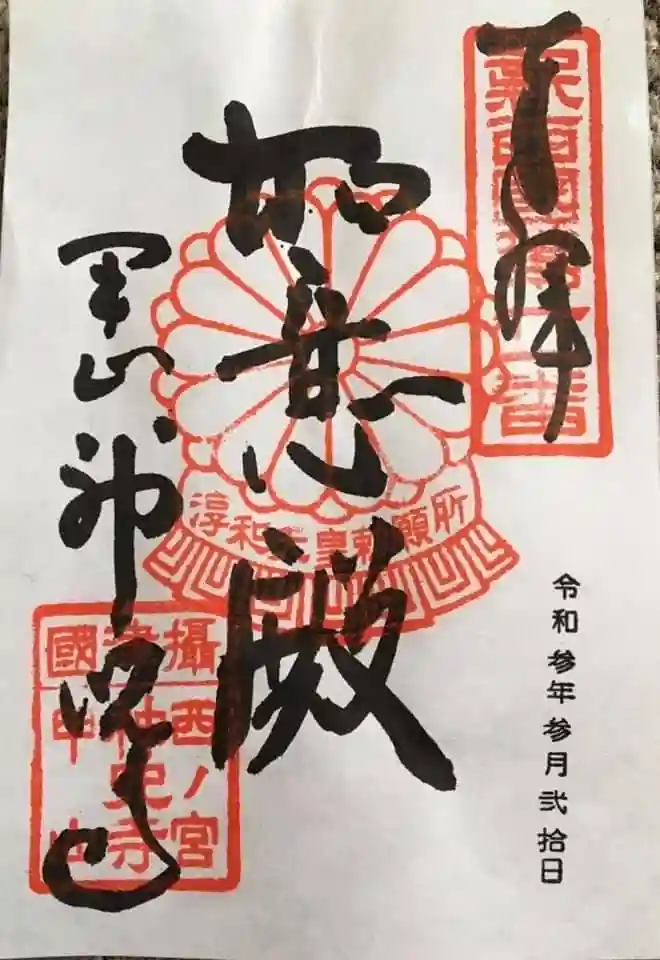 奉拝
新西國
番
如意殿
淳和天皇勅願所
甲山神呪寺
攝津國
西ノ宮
神呪寺
甲山
令和参年参月弐拾日